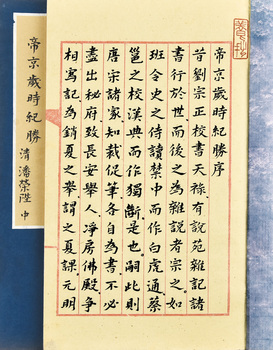 帝京歲時紀勝序
昔劉宗正校書天祿有說苑雜記諸
書行於世而後之為雜說者宗之如
班令史之侍讀禁中而作白虎通蔡
邕之校漢典而作獨斷是也嗣此則
唐宋諸家知裁促筆各自為書不必
盡出秘府致長安舉人凈房佛殿爭
相寫記為銷夏之舉謂之夏課元明
帝京歲時紀勝 清 潘榮陛 中